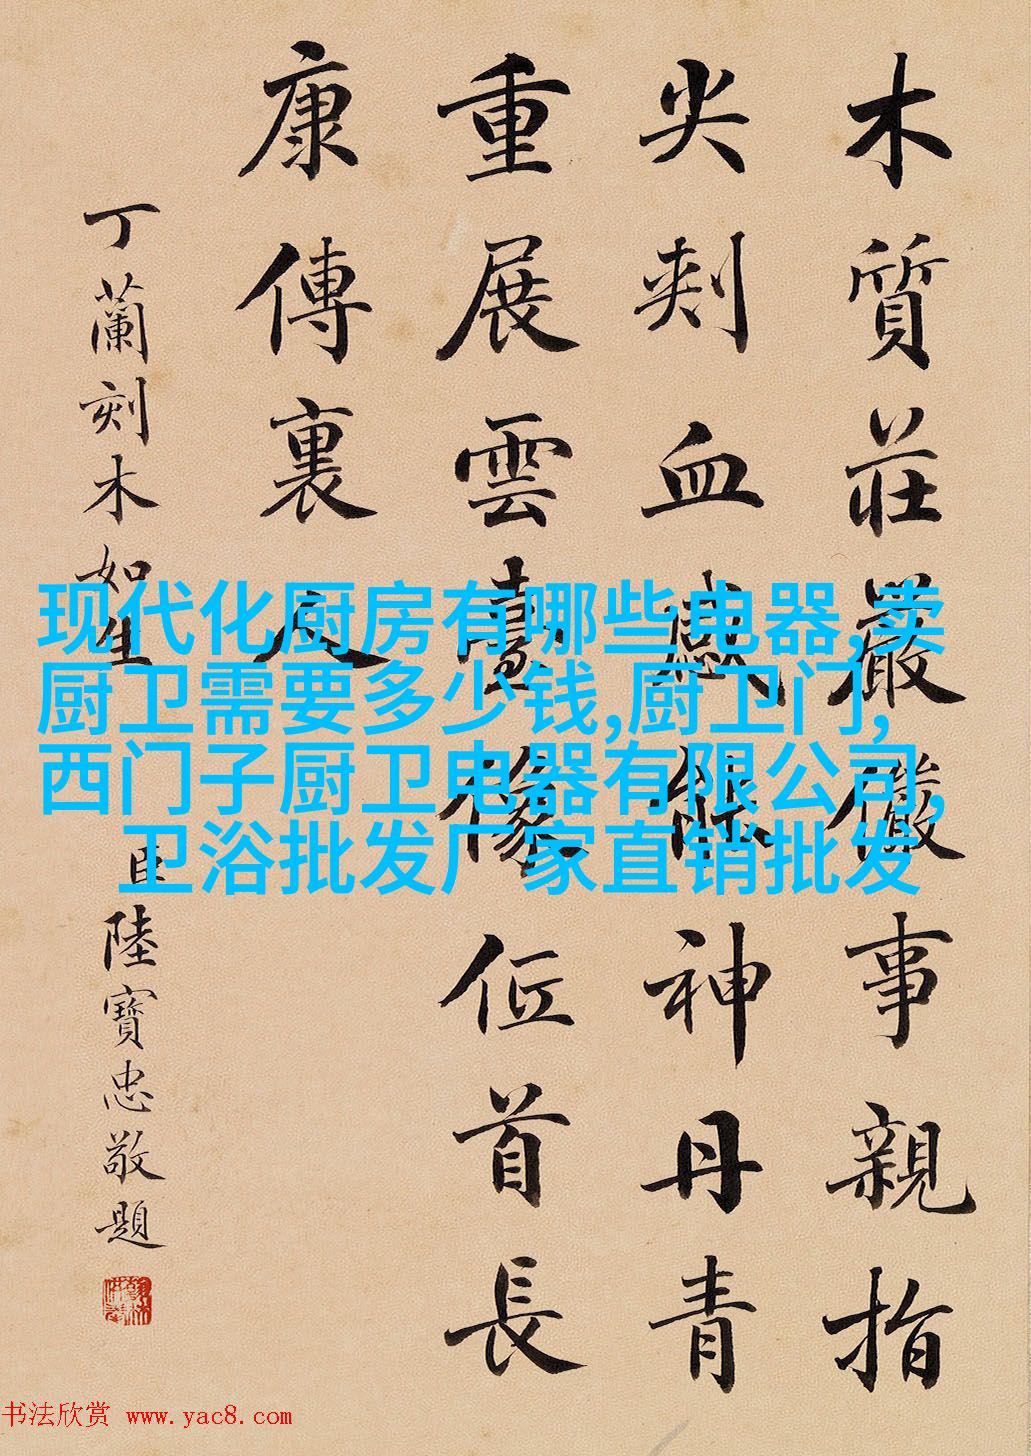 木質莊嚴儼事親指
尖刾血感能神丹青
重展雲臺像位首長
康傳裏人
丁蘭刻木如生
臣陸寶忠敬題
现代化厨房有哪些电器,卖
厨卫需要多少钱,厨卫门,
西门子厨卫电器有限公司,
卫浴批发厂家直销批发
书法欣赏 www.yac8.com